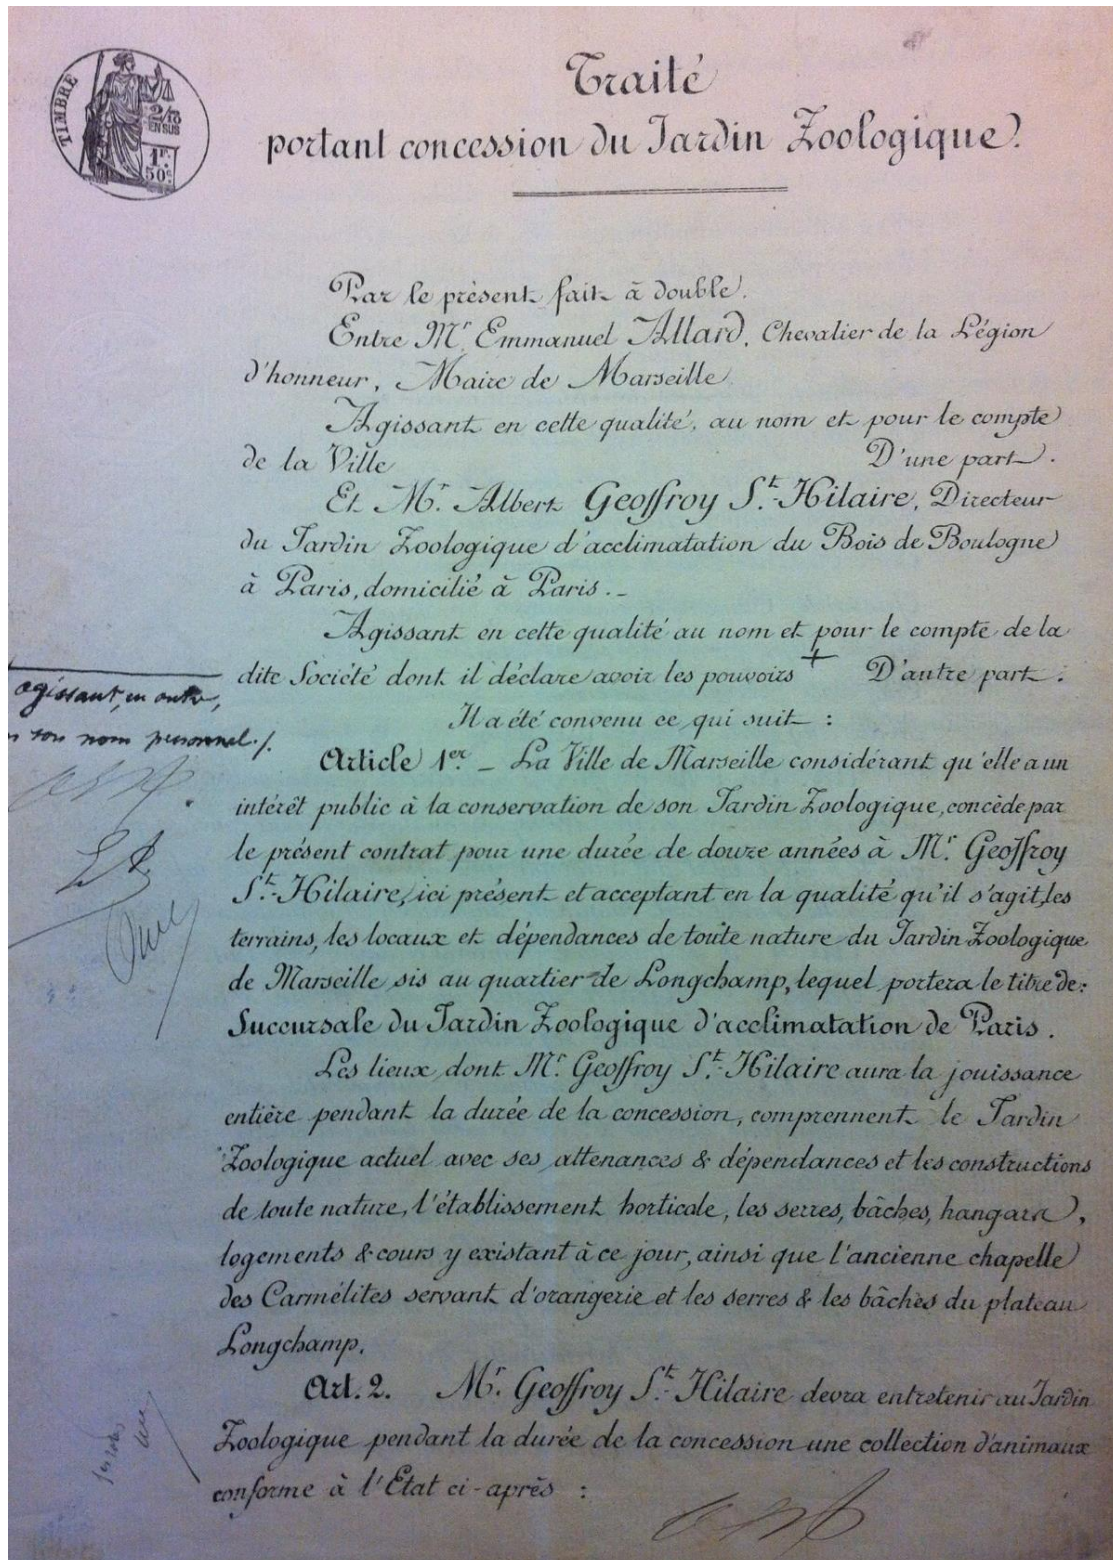 TIMBRE
2/10
EN SUS
1F.
50c.
Traité
portant concession du Jardin Zoologique.
Par le présent fait à double.
Entre Mr. Emmanuel Allard, Chevalier de la Légion
d'honneur, Maire de Marseille
Agissant en cette qualité, au nom et pour le compte
de la Ville D'une part.
Et Mr. Albert Geoffroy St.-Hilaire, Directeur
du Jardin Zoologique d'acclimatation du Bois de Boulogne
à Paris, domicilié à Paris._
Agissant en cette qualité au nom et pour le compte de la
dite Société dont il déclare avoir les pouvoirs + D'autre part.
agissant, en outre,
en son nom personnel./.
Il a été convenu ce qui suit :
Article 1er. _ La Ville de Marseille considérant qu'elle a un
intérêt public à la conservation de son Jardin Zoologique, concède par
le présent contrat pour une durée de douze années à Mr. Geoffroy
St.-Hilaire, ici présent et acceptant en la qualité qu'il s'agit, les
terrains, les locaux et dépendances de toute nature du Jardin Zoologique
de Marseille sis au quartier de Longchamp, lequel portera le titre de :
Succursale du Jardin Zoologique d'acclimatation de Paris.
Les lieux dont Mr. Geoffroy St.-Hilaire aura la jouissance
entière pendant la durée de la concession, comprennent le Jardin
Zoologique actuel avec ses attenances & dépendances et les constructions
de toute nature, l'établissement horticole, les serres, bâches, hangars,
logements & cours y existant à ce jour, ainsi que l'ancienne chapelle
des Carmélites servant d'orangerie et les serres & les bâches du plateau
Longchamp.
Art. 2. Mr. Geoffroy St.-Hilaire devra entretenir au Jardin
Zoologique pendant la durée de la concession une collection d'animaux
conforme à l'Etat ci-après :